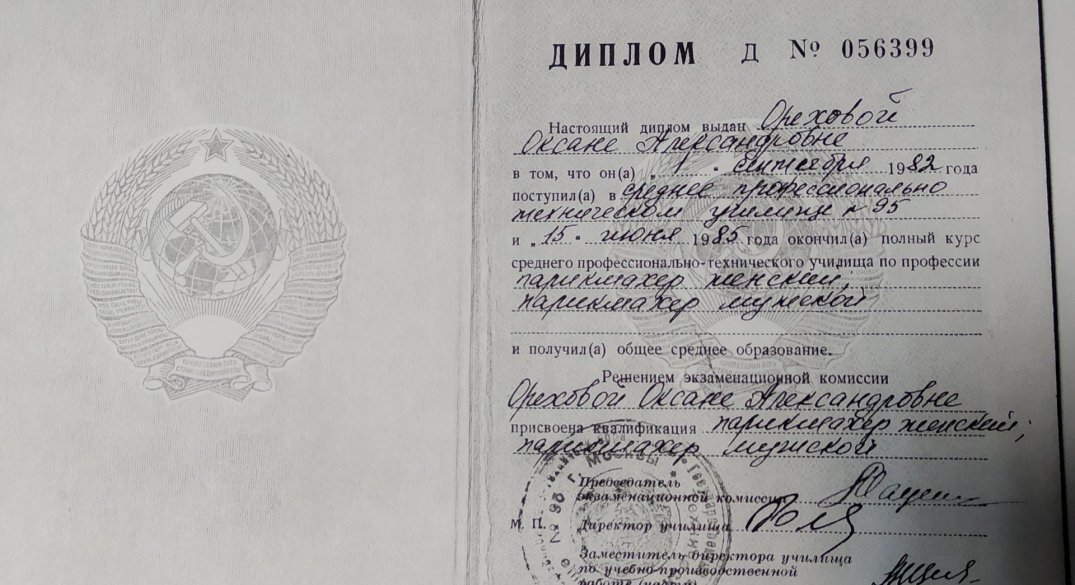 ДИПЛОМ Д № 056399
Настоящий диплом выдан Ореховой
Оксане Александровне
в том, что он(а) „ 1 " сентября 1982 года
поступил(а) в среднее профессионально
техническом училище № 95
и „ 15 " июня 1985 года окончил(а) полный курс
среднего профессионально-технического училища по профессии
парикмахер женский;
парикмахер мужской
и получил(а) общее среднее образование.
Решением экзаменационной комиссии
Ореховой Оксане Александровне
присвоена квалификация парикмахер женский;
парикмахер мужской
Председатель
экзаменационной комиссии
М. П. Директор училища
Заместитель директора училища
по учебно-производственной
работе
№ 95 г. Москвы
ПРОЛЕТАРИИ ВСЕХ
СТРАН СОЕДИНЯЙТЕСЬ